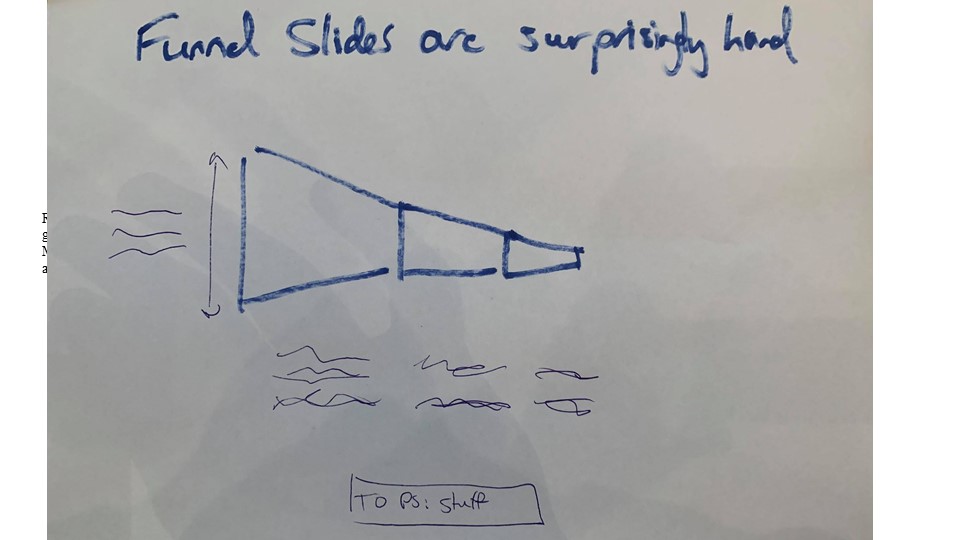 Funnel Slides are surprisingly hard
TO PS: stuff